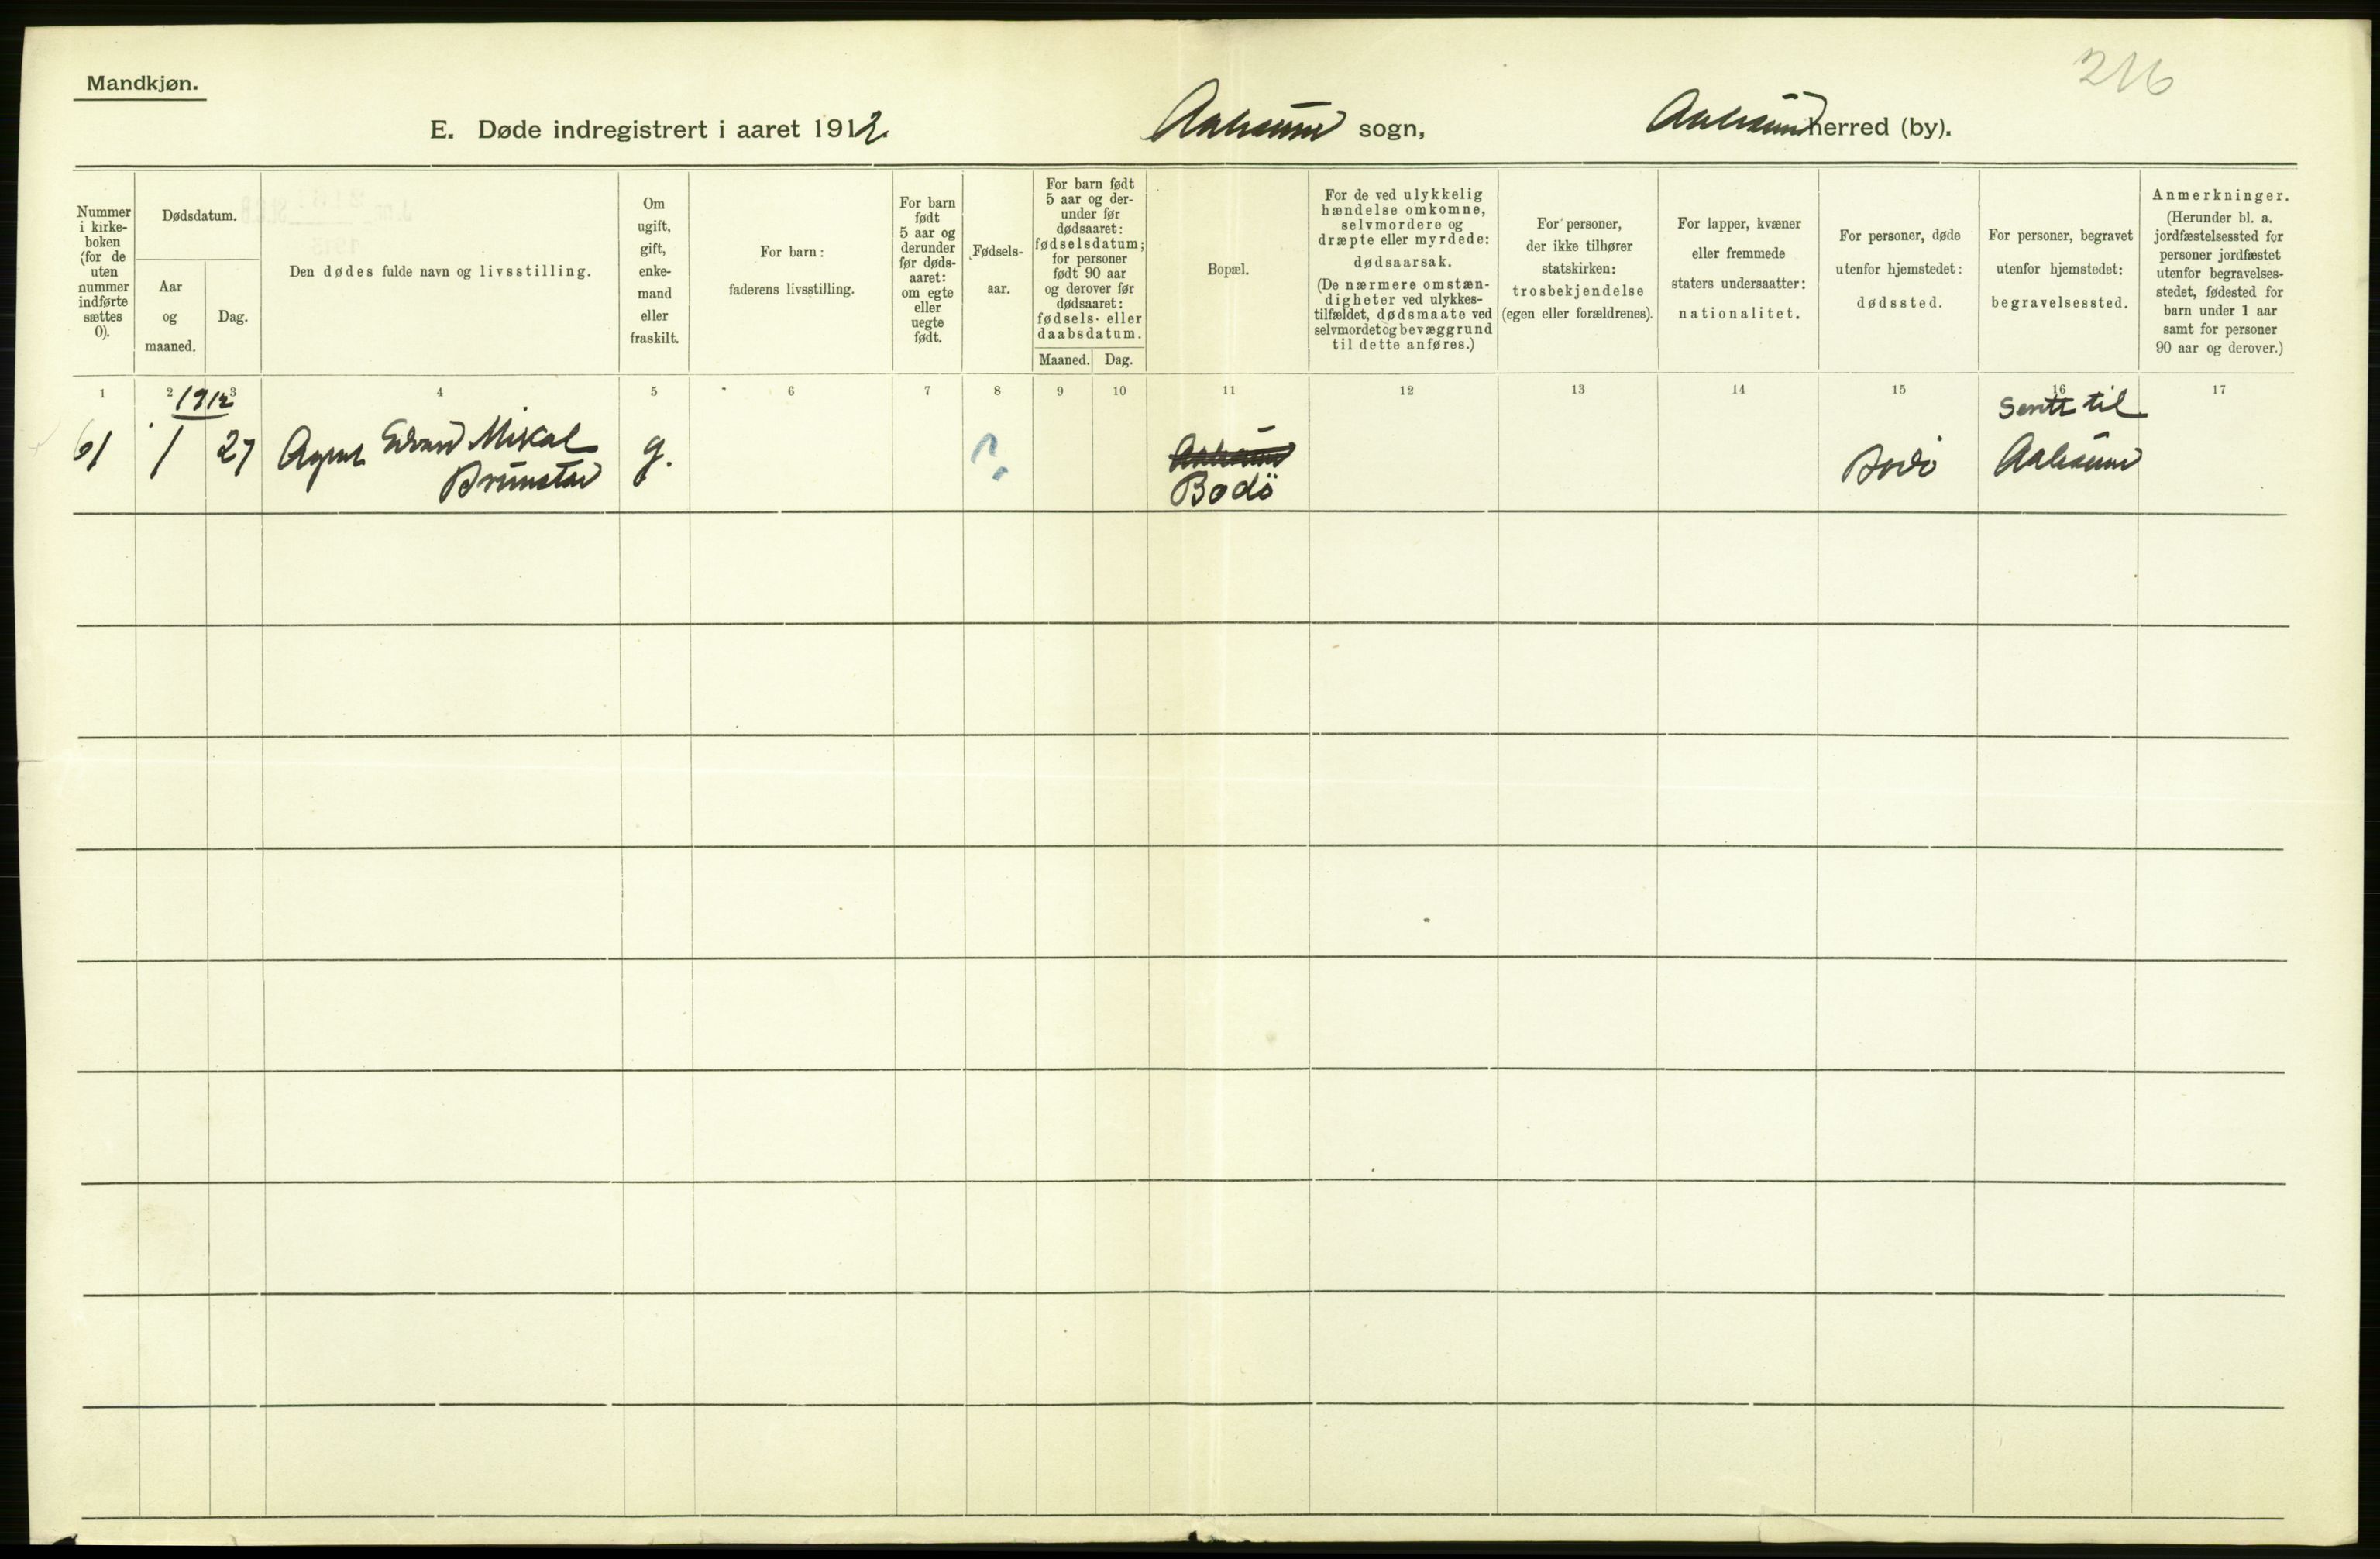 216
Mandkjøn.
E. Døde indregistrert i aaret 1912 Aalesund sogn, Aalesund herred (by).
Nummer i kirke-boken (for de uten nummer indførte sættes 0).
Dødsdatum.
Aar og maaned.
Dag.
Den dødes fulde navn og livsstilling.
Om ugift, gift, enke-mand eller fraskilt.
For barn: faderens livsstilling.
For barn født 5 aar og derunder før døds-aaret: om egte eller uegte født.
Fødsels-aar.
For barn født 5 aar og der-under før dødsaaret: fødselsdatum; for personer født 90 aar og derover før dødsaaret: fødsels- eller daabsdatum.
Maaned. Dag.
Bopæl.
For de ved ulykkelig hændelse omkomne, selvmordere og dræpte eller myrdede: dødsaarsak.
(De nærmere omstæn-digheter ved ulykkes-tilfældet, dødsmaate ved selvmordet og bevæggrund til dette anføres.)
For personer, der ikke tilhører statskirken: trosbekjendelse (egen eller forældrenes).
For lapper, kvæner eller fremmede staters undersaatter: nationalitet.
For personer, døde utenfor hjemstedet: dødssted.
For personer, begravet utenfor hjemstedet: begravelsessted.
Anmerkninger.
(Herunder bl. a. jordfæstelsessted for personer jordfæstet utenfor begravelses-stedet, fødested for barn under 1 aar samt for personer 90 aar og derover.)
1 2 3 4 5 6 7 8 9 10 11 12 13 14 15 16 17
1912
Sendt til
61 1 27 Agent Edvard Mikal g. ? Aalesund Bodø Aalesund
Brunstad Bodö